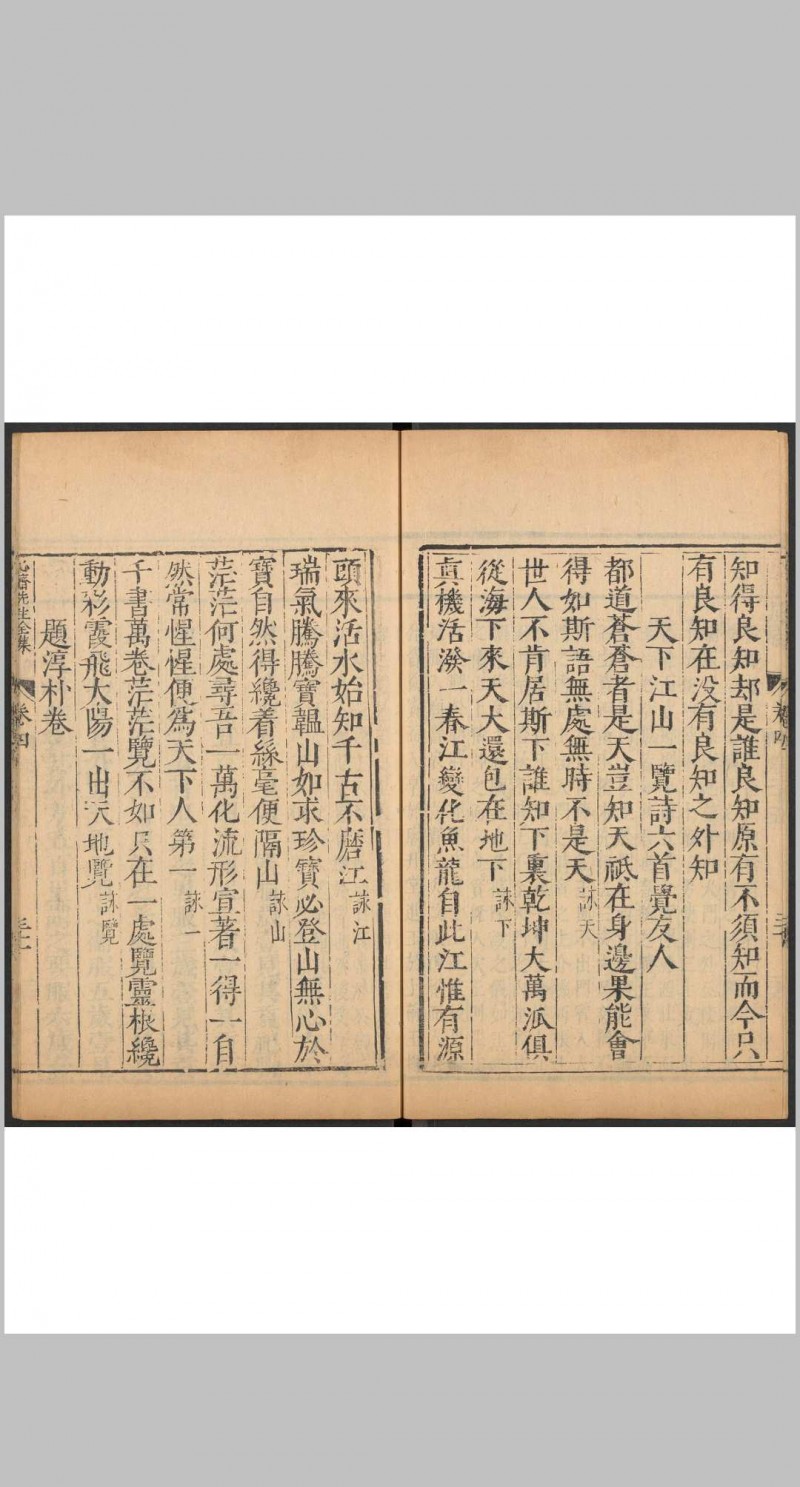 知得良知却是誰良知原有不須知而今只
有良知在没有良知之外知
天下江山一覽詩六首覺友人
都道蒼蒼者是天豈知天祇在身邊果能會
得如斯語無處無時不是天 詠天
世人不肯居斯下誰知下裏乾坤大萬派俱
從海下來天大還包在地下 詠下
真機活潑一春江變化魚龍自此江惟有源
頭來活水始知千古不磨江 詠江
瑞氣騰騰寶韞山如求珍寶必登山無心於
寶自然得纔着絲毫便隔山 詠山
茫茫何處尋吾一萬化流形宣著一得一自
然常惺惺便爲天下人第一 詠一
千書萬卷茫茫覽不如只在一處覽靈根纔
動彩霞飛太陽一出天地覽 詠覽
題淳朴卷
心齋先生全集 卷四